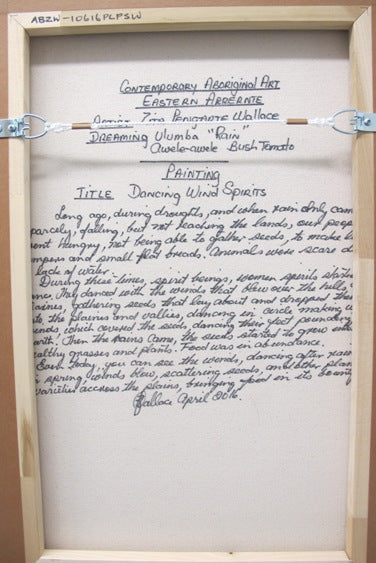 ABZW-10616PLPSW
CONTEMPORORY ABORIGINAL ART
EASTERN ARRERNTE
ARTIST Zita Pengtarte Wallace
DREAMING Ulumba "Rain"
awele-awele Bush Tomato
PAINTING
TITLE DANCING WIND SPIRITS
Long ago, during droughts, and when rain only cam
parcely, falling, but not reaching the lands, our peop
ent hungry, not being able to gather seeds, to make
mpers and small flat breads. Animals were scare d
lack of water.
During these times, spirit beings, women spirits
They danced with the winds that blew over the hills,
gathering seeds that lay about and dropped the
the plaines and vallies, dancing in circle making
inds, which covered the seeds dancing their feet pounding
arth. Then the rains came, the seeds started to grow into
althy grasses and plants. Food was in abundance.
Even today, you can see the winds, dancing after rain
spring winds blow, scattering seeds, and other plan
varieties accross the plains, bringing food in its bounty
Wallace April 2016.